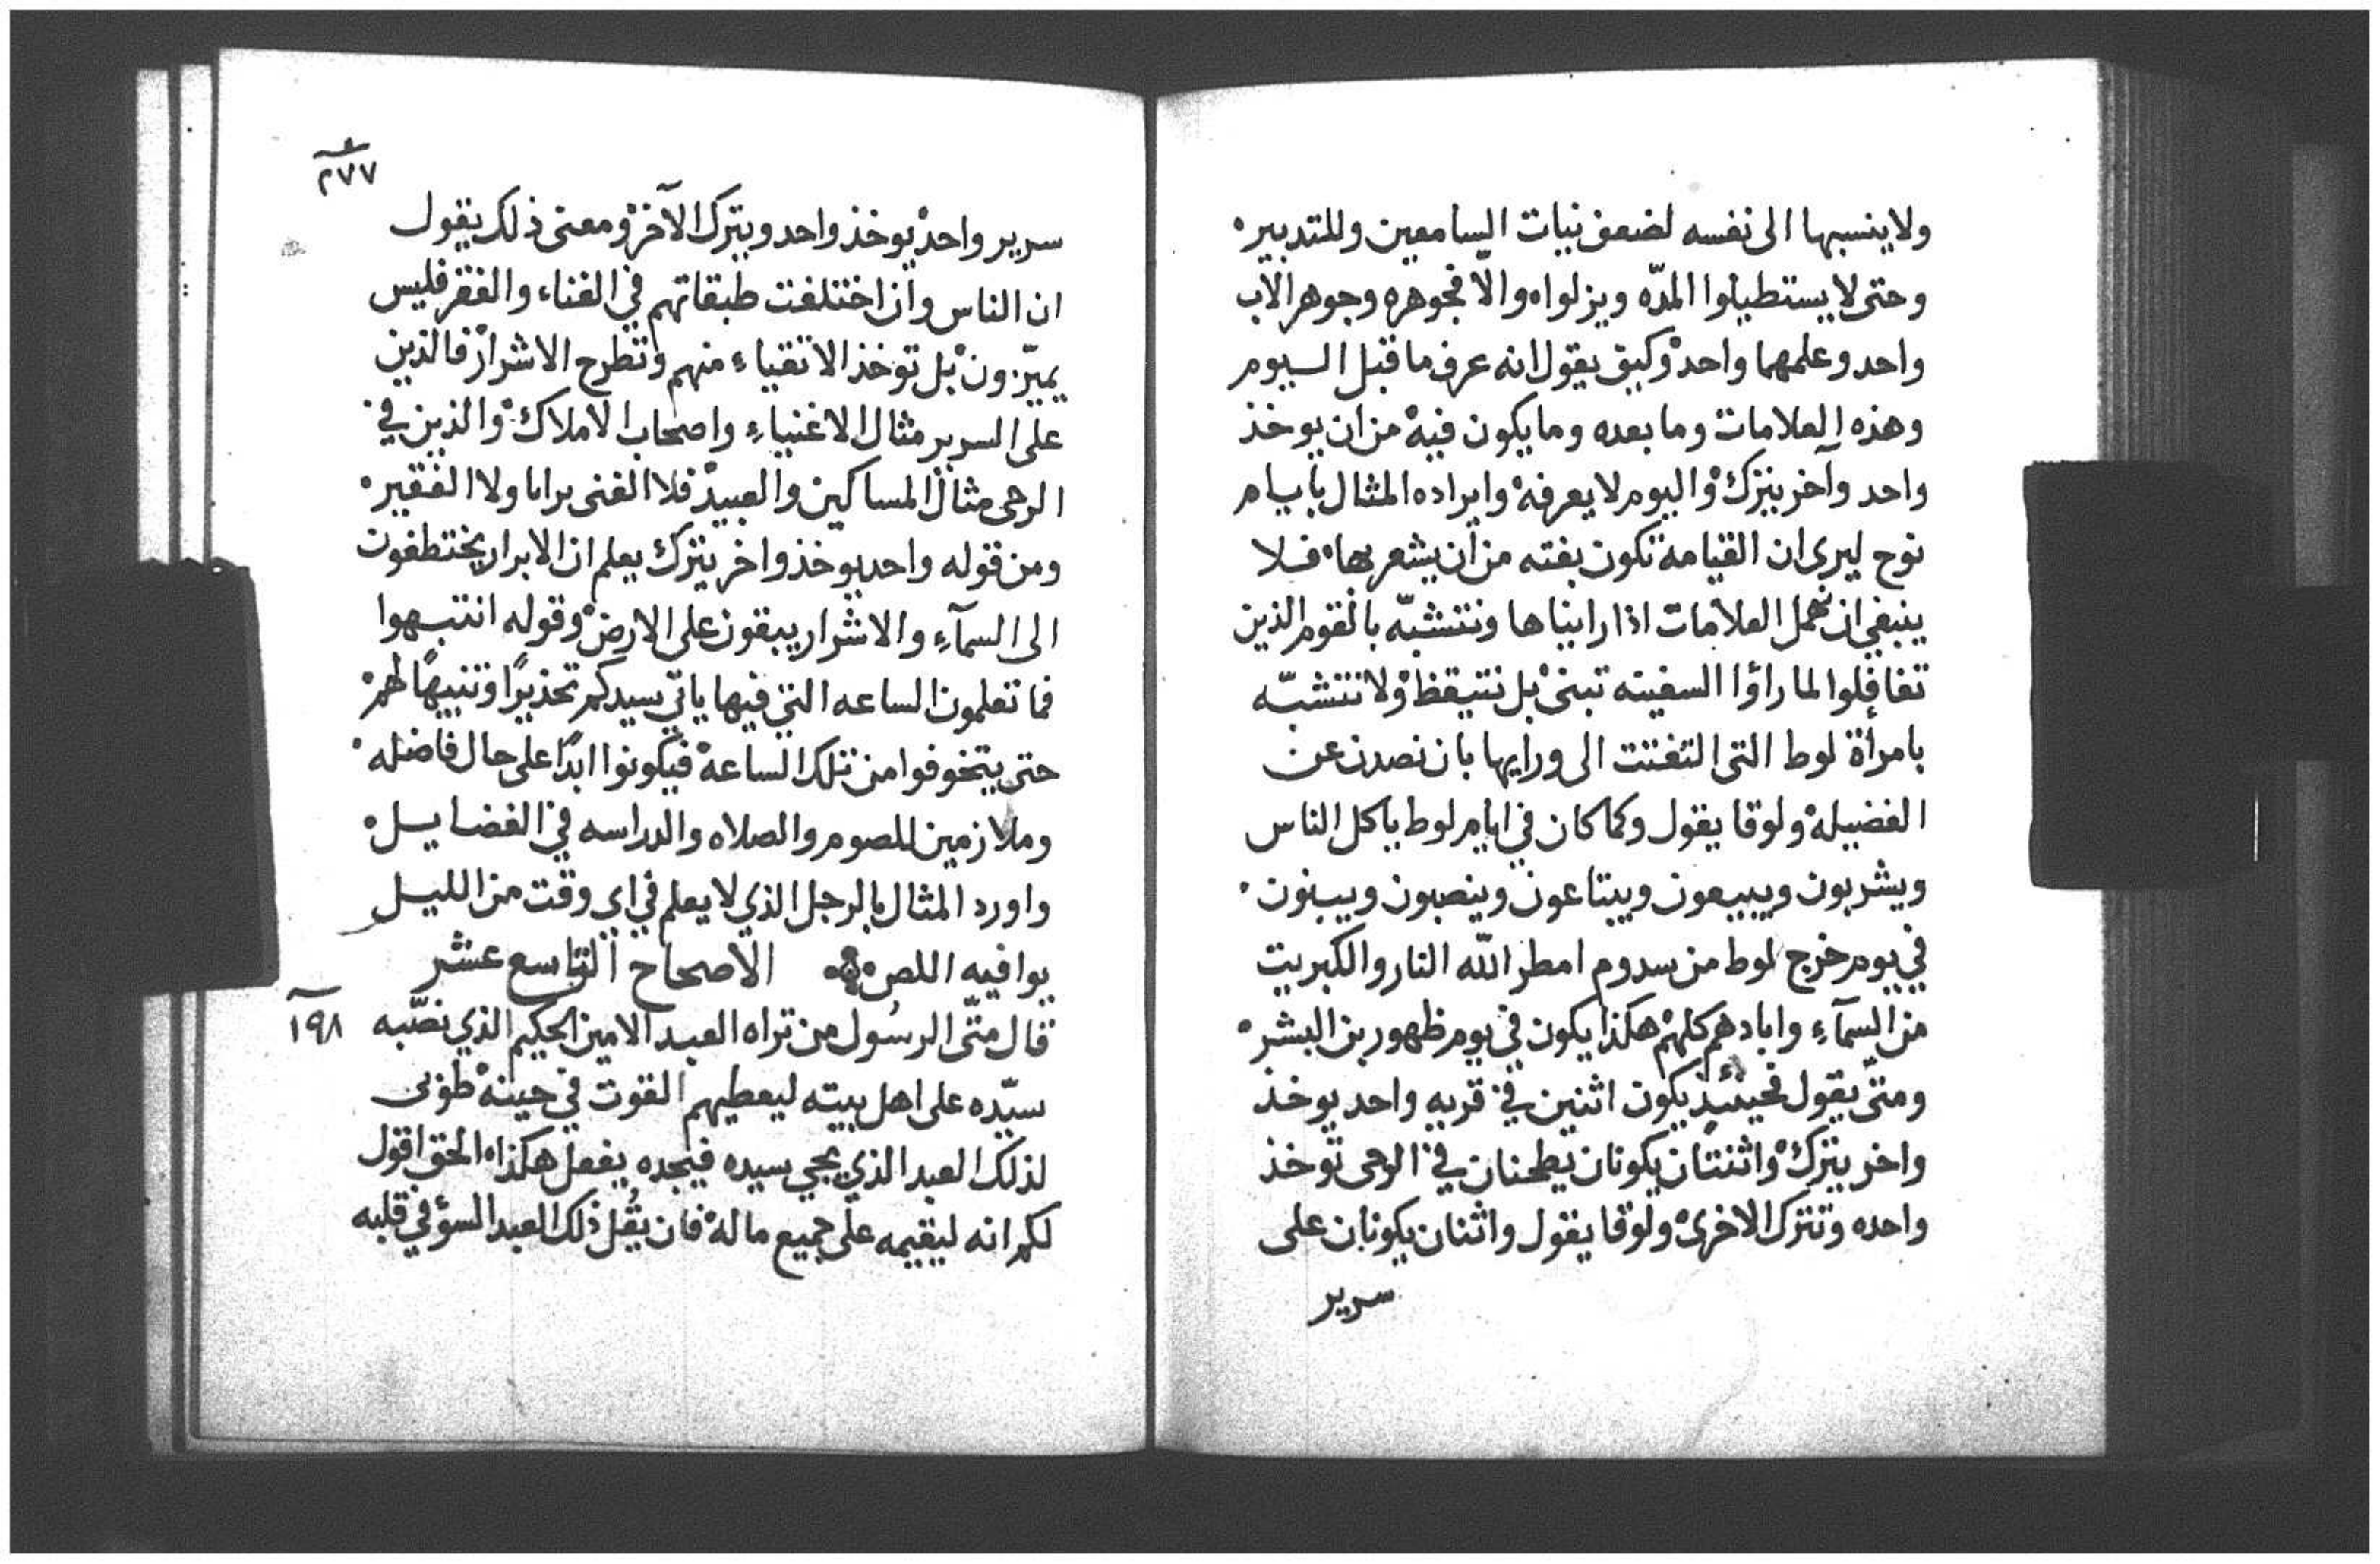 ولا ينسبها الى نفسه لضعف نيات السامعين وللتدبير
وحتى لا يستطيلوا المدّه ويزلواه والا فجوهره وجوهر الاب
واحد وعلمهما واحد وكيف يقول انه عرف ما قبل اليوم
وهذه العلامات وما بعده وما يكون فيه من ان يوخذ
واحد وآخر يترك واليوم لا يعرفه وايراده المثال بايام
نوح ليرى ان القيامة تكون بغته من ان يشعر بها فلا
ينبغي ان نهمل العلامات اذا رايناها ونتشبّه بالقوم الذين
تغافلوا لما راؤا السفينه تبنى بل نتيقظ ولا نتشبّه
بامرأة لوط التى التفتت الى ورايها بان نصدن عن
الفضيلة ولوقا يقول وكما كان في ايام لوط ياكل الناس
ويشربون ويبيعون ويبتاعون وينصبون ويبنون
في يوم خرج لوط من سدوم امطر اللّه النار والكبريت
من السمآء وابادهم كلهم هكذا يكون في يوم ظهور بن البشر
ومتّى يقول فحينئذٍ يكون اثنين في قريه واحد يوخذ
واخر يترك واثنتان يكونان يطحنان في الرحى توخذ
واحده وتترك الاخرى ولوقا يقول واثنان يكونان على
سرير
٢٧٧
سرير واحد يوخذ واحد ويترك الآخر ومعنى ذلك يقول
ان الناس وان اختلفت طبقاتهم في الغناء والفقر فليس
يميّزون بل توخذ الاتقياء منهم وتطرح الاشرار فالذين
على السرير مثال الاغنياء واصحاب الاملاك والذين في
الرحى مثال المساكين والعبيد فلا الغنى برابا ولا الفقير
ومن قوله واحد يوخذ واخر يترك يعلم ان الابرار يختطفون
الى السمآء والاشرار يبقون على الارض وقوله انتبهوا
فما تعلمون الساعه التي فيها ياتي سيدكم تحذيرًا وتنبيهًا لهم
حتى يتخوفوا من تلك الساعة فيكونوا ابدًا على حال فاضله
وملازمين للصوم والصلاه والدراسه في الفضايل
واورد المثال بالرجل الذي لا يعلم في اي وقت من الليل
يوافيه اللص الاصحاح التاسع عشر
١٩٨
قال متّى الرسُول من تراه العبد الامين الحكيم الذي نصّبه
سيّده على اهل بيته ليعطيهم القوت في حينه طوبى
لذلك العبد الذي يجي سيده فيجده يفعل هكذا الحق اقول
لكم انه ليقيمه على جميع ماله فان يقُل ذلك العبد السؤ في قلبه